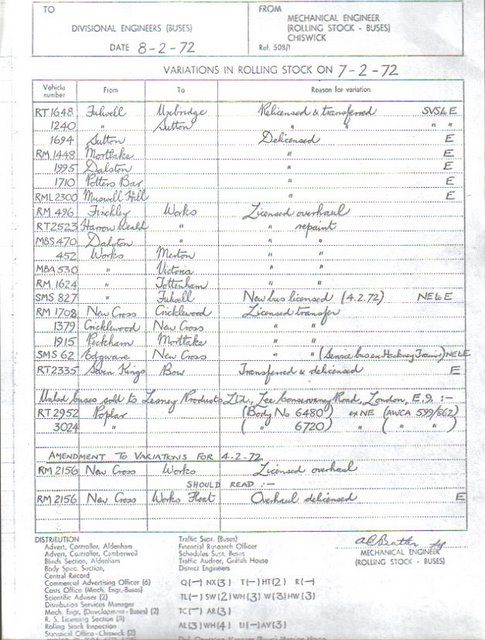 TO
FROM
DIVISIONAL ENGINEERS (BUSES)
MECHANICAL ENGINEER
(ROLLING STOCK - BUSES)
CHISWICK
DATE 8-2-72
Ref. 508/1
VARIATIONS IN ROLLING STOCK ON 7-2-72
Vehicle number From To Reason for variation
RT 1648 Fulwell Uxbridge Relicensed & transferred SVSLE
1240 " Sutton " " " "
1694 Sutton Delicensed E
RM 1448 Mortlake " E
1995 Dalston " E
1710 Potters Bar " E
RML 2300 Muswell Hill " E
RM 496 Finchley Works Licensed overhaul
RT 2523 Harrow Weald " " repaint
MBS 470 Dalston " " "
452 Works Merton " "
MBA 530 " Victoria " "
RM 1624 " Tottenham " "
SMS 827 " Fulwell New bus licensed (4.2.72) NELE
RM 1708 New Cross Cricklewood Licensed transfer
1379 Cricklewood New Cross " "
1915 Peckham Mortlake " "
SMS 62 Edgware New Cross " " (Service bus on Hackney Trains) NELE
RT 2335 Seven Kings Bow Transferred & delicensed E
Unlicd buses sold to Lesney Products Ltd., Lee Conservancy Road, London, E.9. :-
RT 2952 Poplar (Body No 6480) ex NE (AWCA 599/662)
3024 " ( " 6720) " ( " " )
AMENDMENT TO VARIATIONS FOR 4-2-72
RM 2156 New Cross Works Licensed overhaul
SHOULD READ :-
RM 2156 New Cross Works Float Overhaul delicensed E
DISTRIBUTION
Advert. Controller, Aldenham
Advert. Controller, Camberwell
Blinds Section, Aldenham
Body Spec. Section,
Central Record
Commercial Advertising Officer (6)
Costs Office (Mech. Engr.-Buses)
Scientific Adviser (2)
Distribution Services Manager
Mech. Engr. (Development - Buses) (2)
R. S. Licensing Section (3)
Rolling Stock Inspection
Statistical Office - Chiswick (2)
Traffic Supt. (Buses)
Financial Research Officer
Schedules Supt. Buses
Traffic Auditor, Griffith House
District Engineers
Q(-) NX(3) T(-) HT(2) R(-)
TL(-) SW(2) WH(3) W(3) HW(3)
TC(-) AR(3)
AL(3) WH(4) U(-) AV(3)
MECHANICAL ENGINEER
(ROLLING STOCK - BUSES)